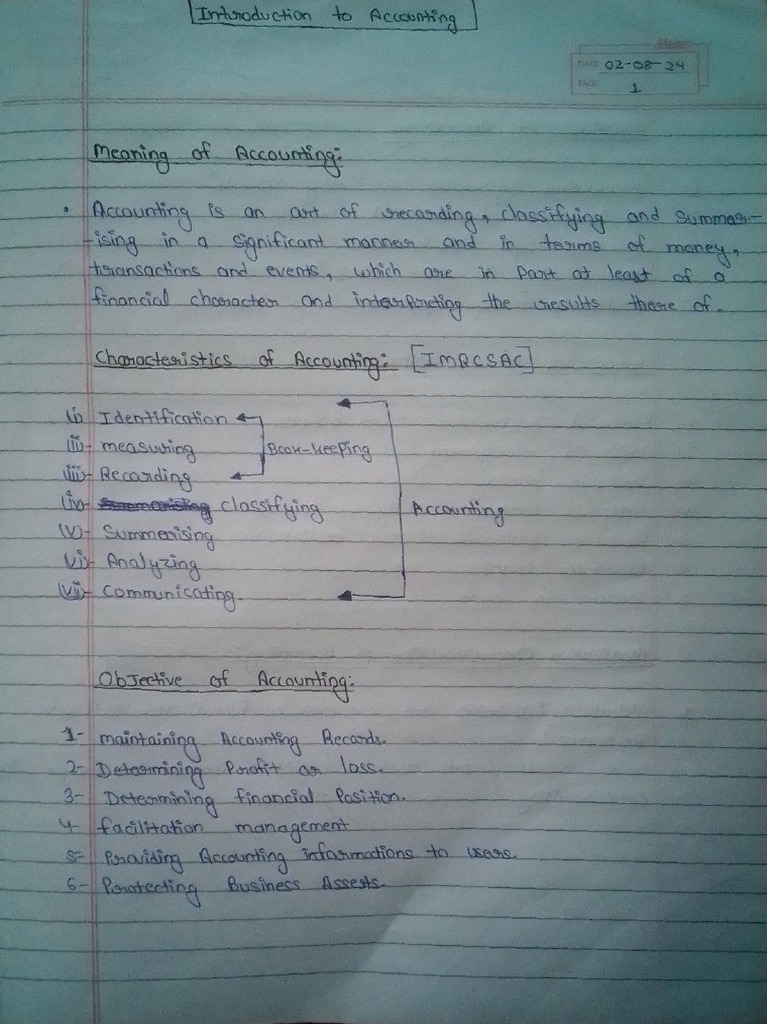 Introduction to Accounting
DATE 02-08-24
PAGE 1
Meaning of Accounting:
• Accounting is an art of recarding, classifying and summar-
-ising in a significant manner and in terms of money,
transactions and events, which are in part at least of a
financial character and interpreting the results there of.
Characteristics of Accounting: [IMRCSAC]
(i) Identification
(ii)- measuring Book-keeping
(iii)- Recarding
(iv)- classifying Accounting
(v)- Summerising
(vi)- Analyzing
(vii)- Communicating.
Objective of Accounting:
1- maintaining Accounting Recards.
2- Determining Profit or loss.
3- Determining financial Position.
4- facilitation management
5- Providing Accounting informations to users.
6- Protecting Business Assests.